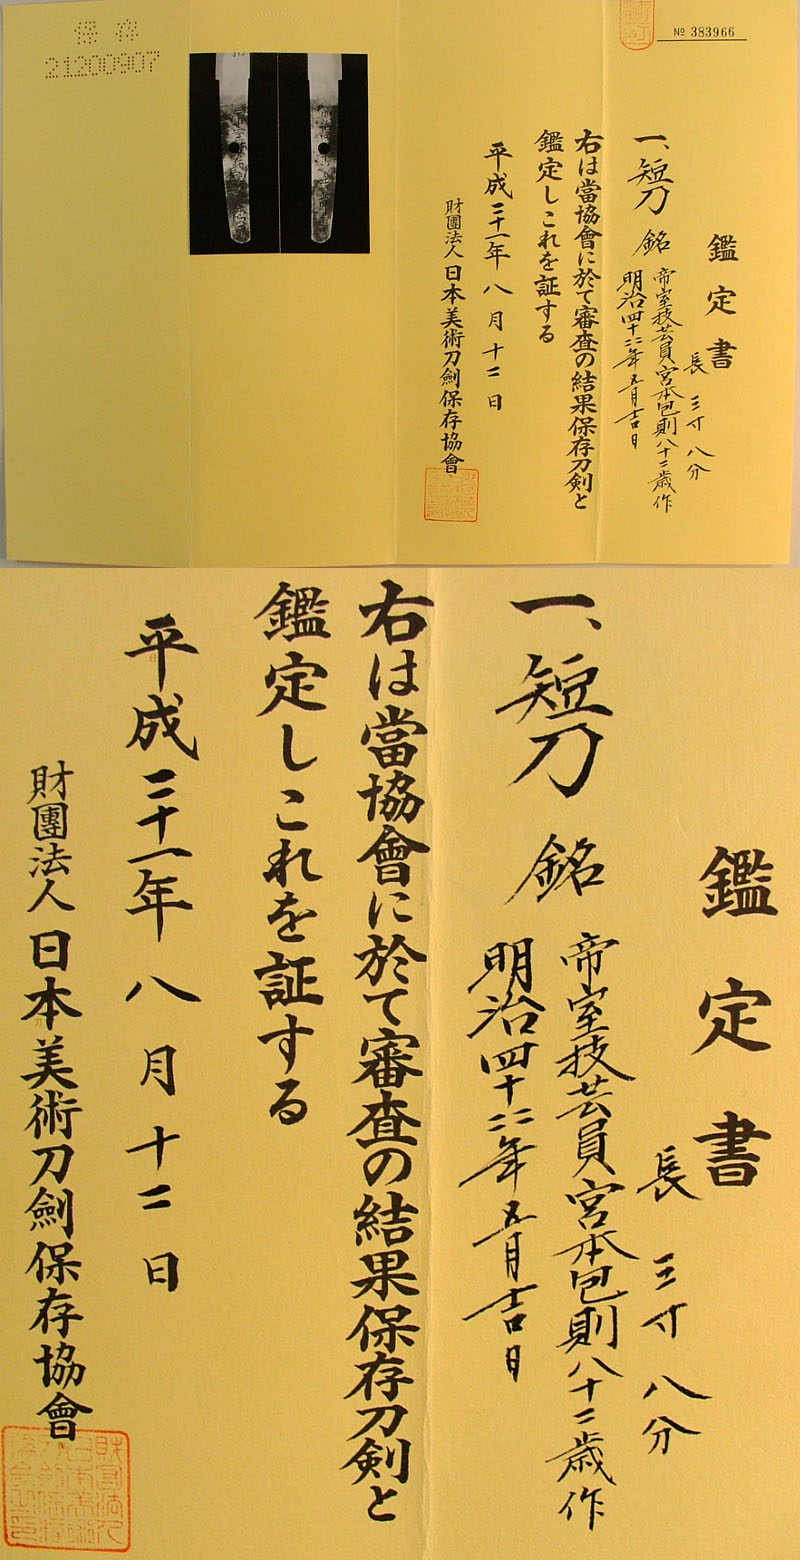 保存
21200907
№ 383966
鑑定書
長 三寸八分
一、短刀 銘 帝室技芸員宮本包則八十二歳作
明治四十二二年五月吉日
右は當協會に於て審査の結果保存刀剣と
鑑定しこれを証する
平成二十一年八月十二日
財團法人日本美術刀劍保存協會
鑑定書
長 三寸八分
一、短刀 銘 帝室技芸員宮本包則八十二歳作
明治四十二二年五月吉日
右は當協會に於て審査の結果保存刀剣と
鑑定しこれを証する
平成二十一年八月十二日
財團法人日本美術刀劍保存協會